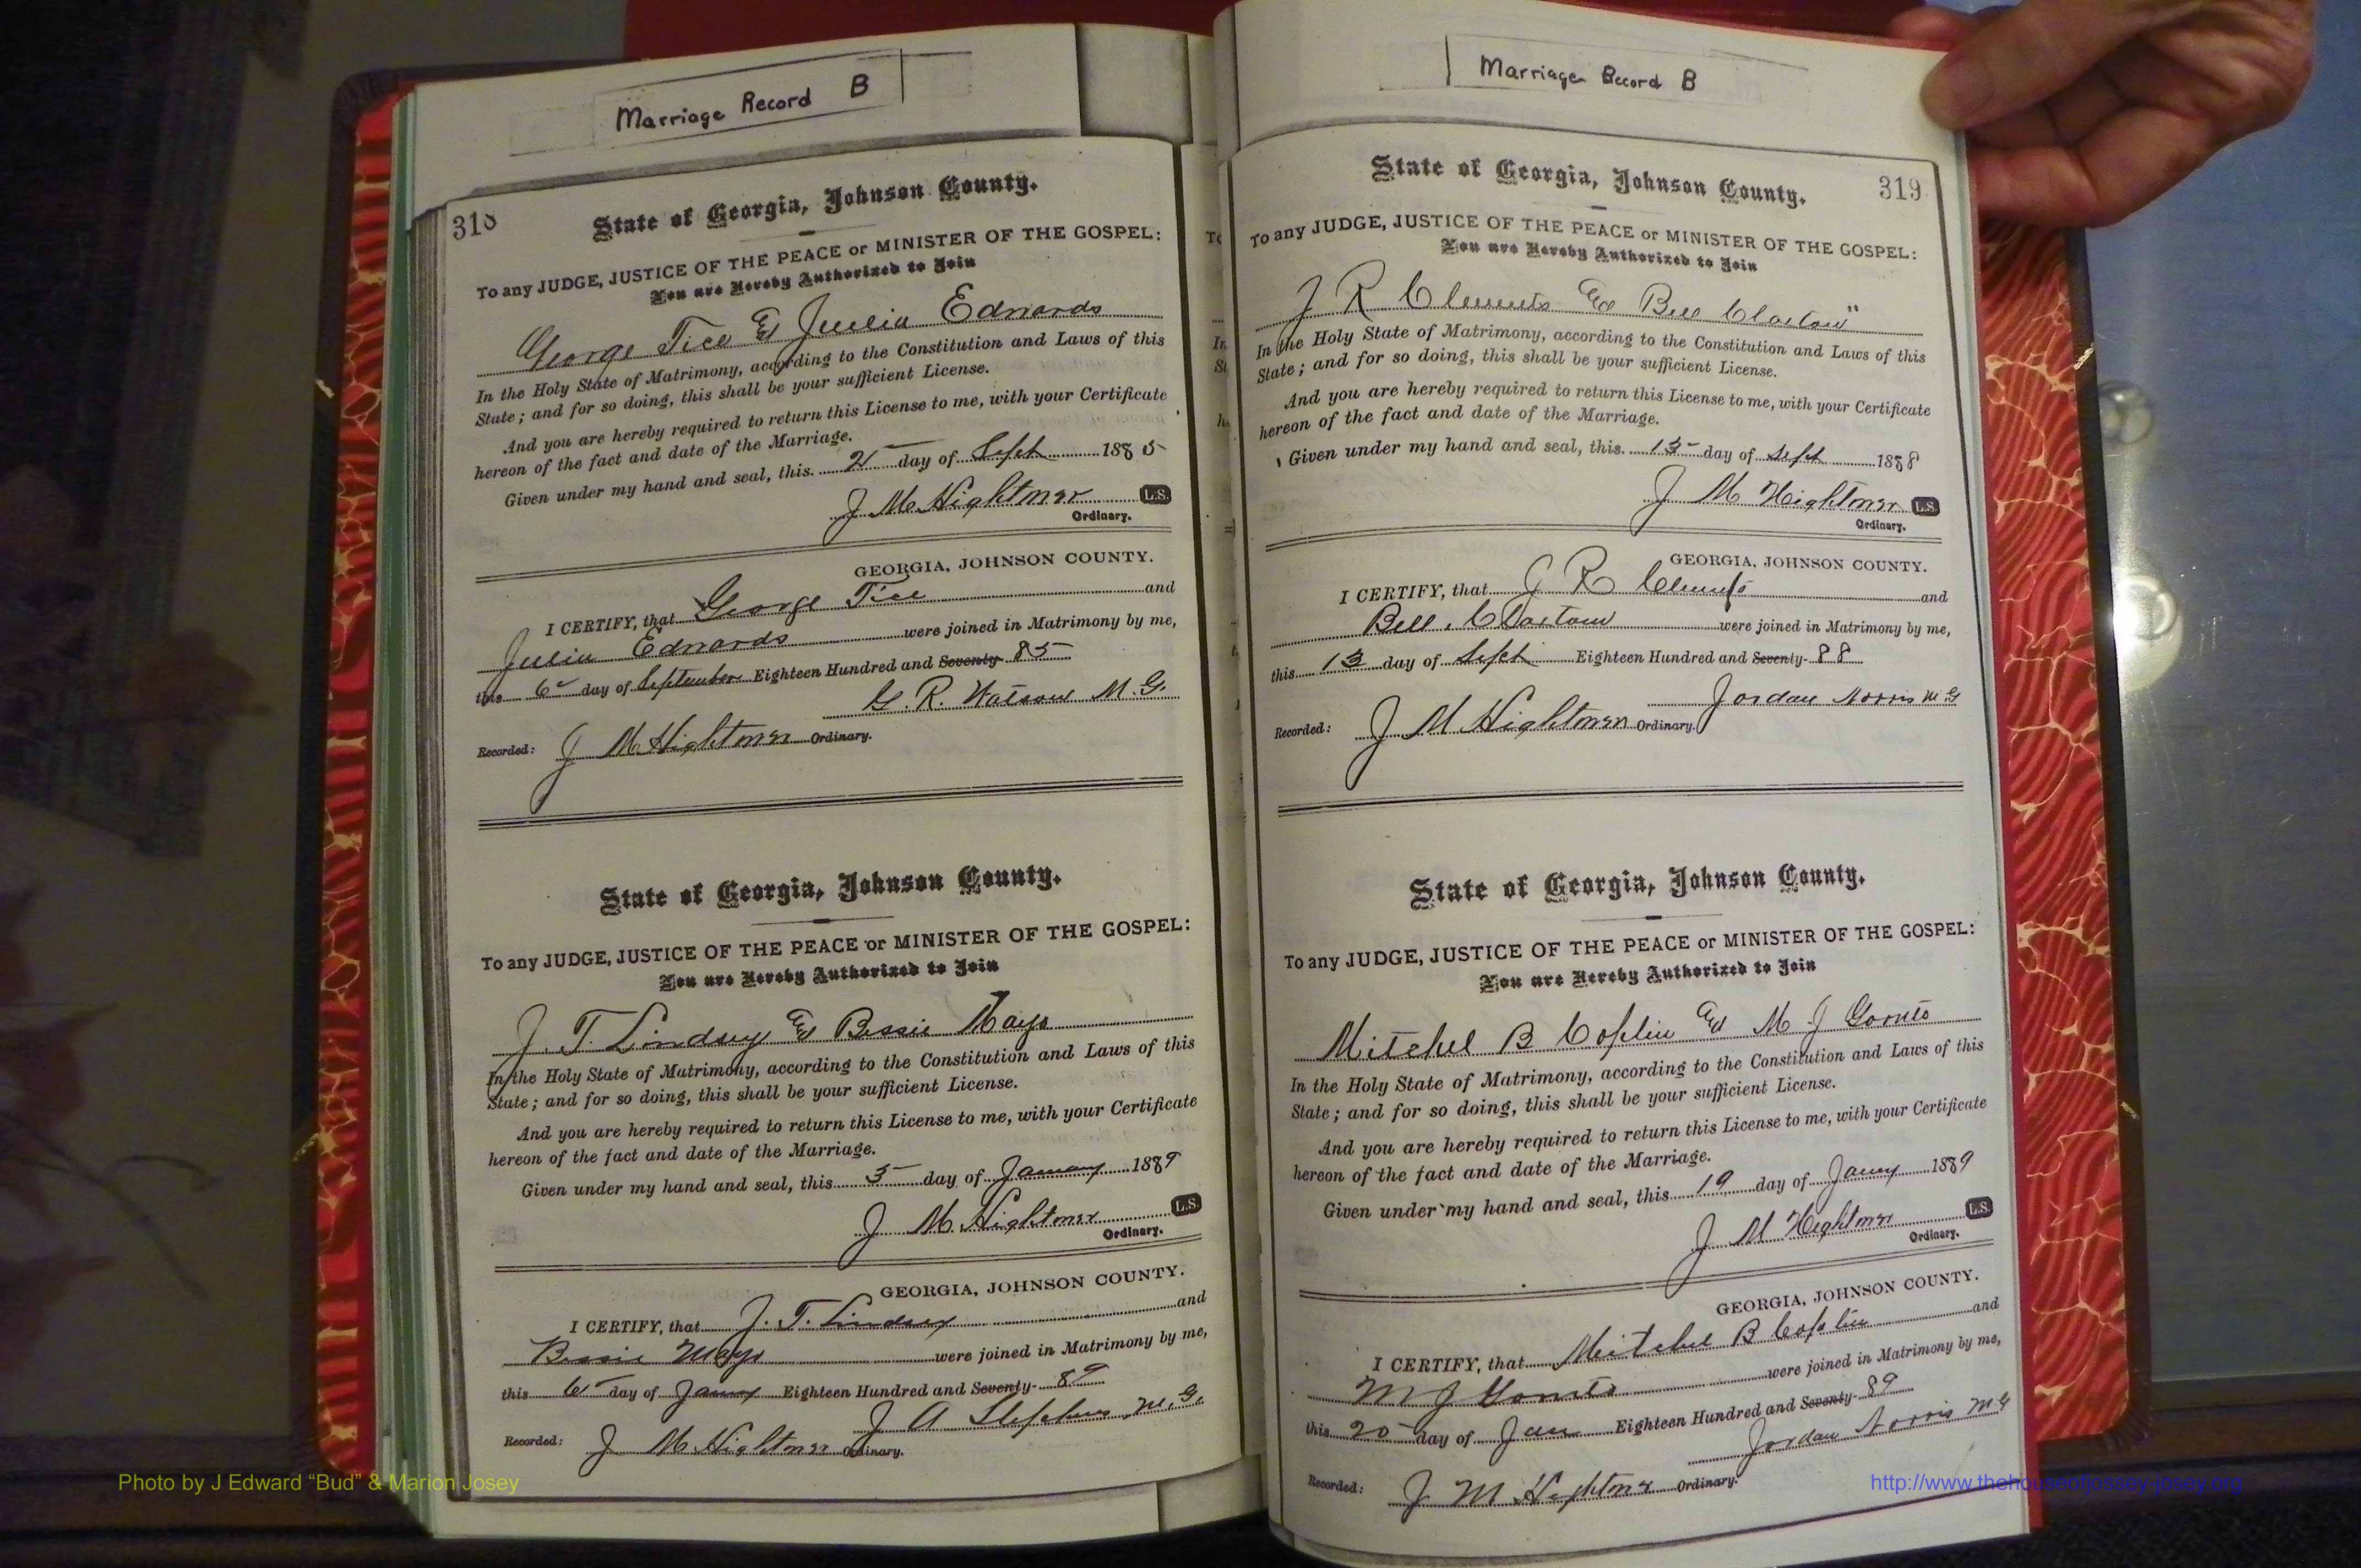 Marriage Record B
318
State of Georgia, Johnson County.
To any JUDGE, JUSTICE OF THE PEACE or MINISTER OF THE GOSPEL:
You are Hereby Authorized to Join
George Tice & Julia Edwards
In the Holy State of Matrimony, according to the Constitution and Laws of this
State; and for so doing, this shall be your sufficient License.
And you are hereby required to return this License to me, with your Certificate
hereon of the fact and date of the Marriage.
Given under my hand and seal, this 2 day of Sept 1885
J M Hightower L.S.
Ordinary.
GEORGIA, JOHNSON COUNTY.
I CERTIFY, that George Tice and
Julia Edwards were joined in Matrimony by me,
this 6 day of September Eighteen Hundred and Seventy- 85
G. R. Watson M.G.
Recorded: J M Hightower Ordinary.
State of Georgia, Johnson County.
To any JUDGE, JUSTICE OF THE PEACE or MINISTER OF THE GOSPEL:
You are Hereby Authorized to Join
J. T. Lindsey & Bessie Mays
In the Holy State of Matrimony, according to the Constitution and Laws of this
State; and for so doing, this shall be your sufficient License.
And you are hereby required to return this License to me, with your Certificate
hereon of the fact and date of the Marriage.
Given under my hand and seal, this 5 day of January 1889
J M Hightower L.S.
Ordinary.
GEORGIA, JOHNSON COUNTY.
I CERTIFY, that J. T. Lindsey and
Bessie Mays were joined in Matrimony by me,
this 6 day of Jany Eighteen Hundred and Seventy- 89
J A Stephens M.G.
Recorded: J M Hightower Ordinary.
Marriage Record B
319
State of Georgia, Johnson County.
To any JUDGE, JUSTICE OF THE PEACE or MINISTER OF THE GOSPEL:
You are Hereby Authorized to Join
J R Clements & Bell Claxton
In the Holy State of Matrimony, according to the Constitution and Laws of this
State; and for so doing, this shall be your sufficient License.
And you are hereby required to return this License to me, with your Certificate
hereon of the fact and date of the Marriage.
Given under my hand and seal, this 13 day of Sept 1888
J M Hightower L.S.
Ordinary.
GEORGIA, JOHNSON COUNTY.
I CERTIFY, that J R Clements and
Bell Claxton were joined in Matrimony by me,
this 13 day of Sept Eighteen Hundred and Seventy- 88
Jordan Norris M G
Recorded: J M Hightower Ordinary.
State of Georgia, Johnson County.
To any JUDGE, JUSTICE OF THE PEACE or MINISTER OF THE GOSPEL:
You are Hereby Authorized to Join
Mitchel B Coplin & M J
In the Holy State of Matrimony, according to the Constitution and Laws of this
State; and for so doing, this shall be your sufficient License.
And you are hereby required to return this License to me, with your Certificate
hereon of the fact and date of the Marriage.
Given under my hand and seal, this 19 day of Jany 1889
J M Hightower L.S.
Ordinary.
GEORGIA, JOHNSON COUNTY.
I CERTIFY, that Mitchel B Coplin and
M J were joined in Matrimony by me,
this 20 day of Jan Eighteen Hundred and Seventy- 89
Jordan Norris M G
Recorded: J M Hightower Ordinary.
Photo by J Edward “Bud” & Marion Josey
http://www.thehouseofjossey-josey.org